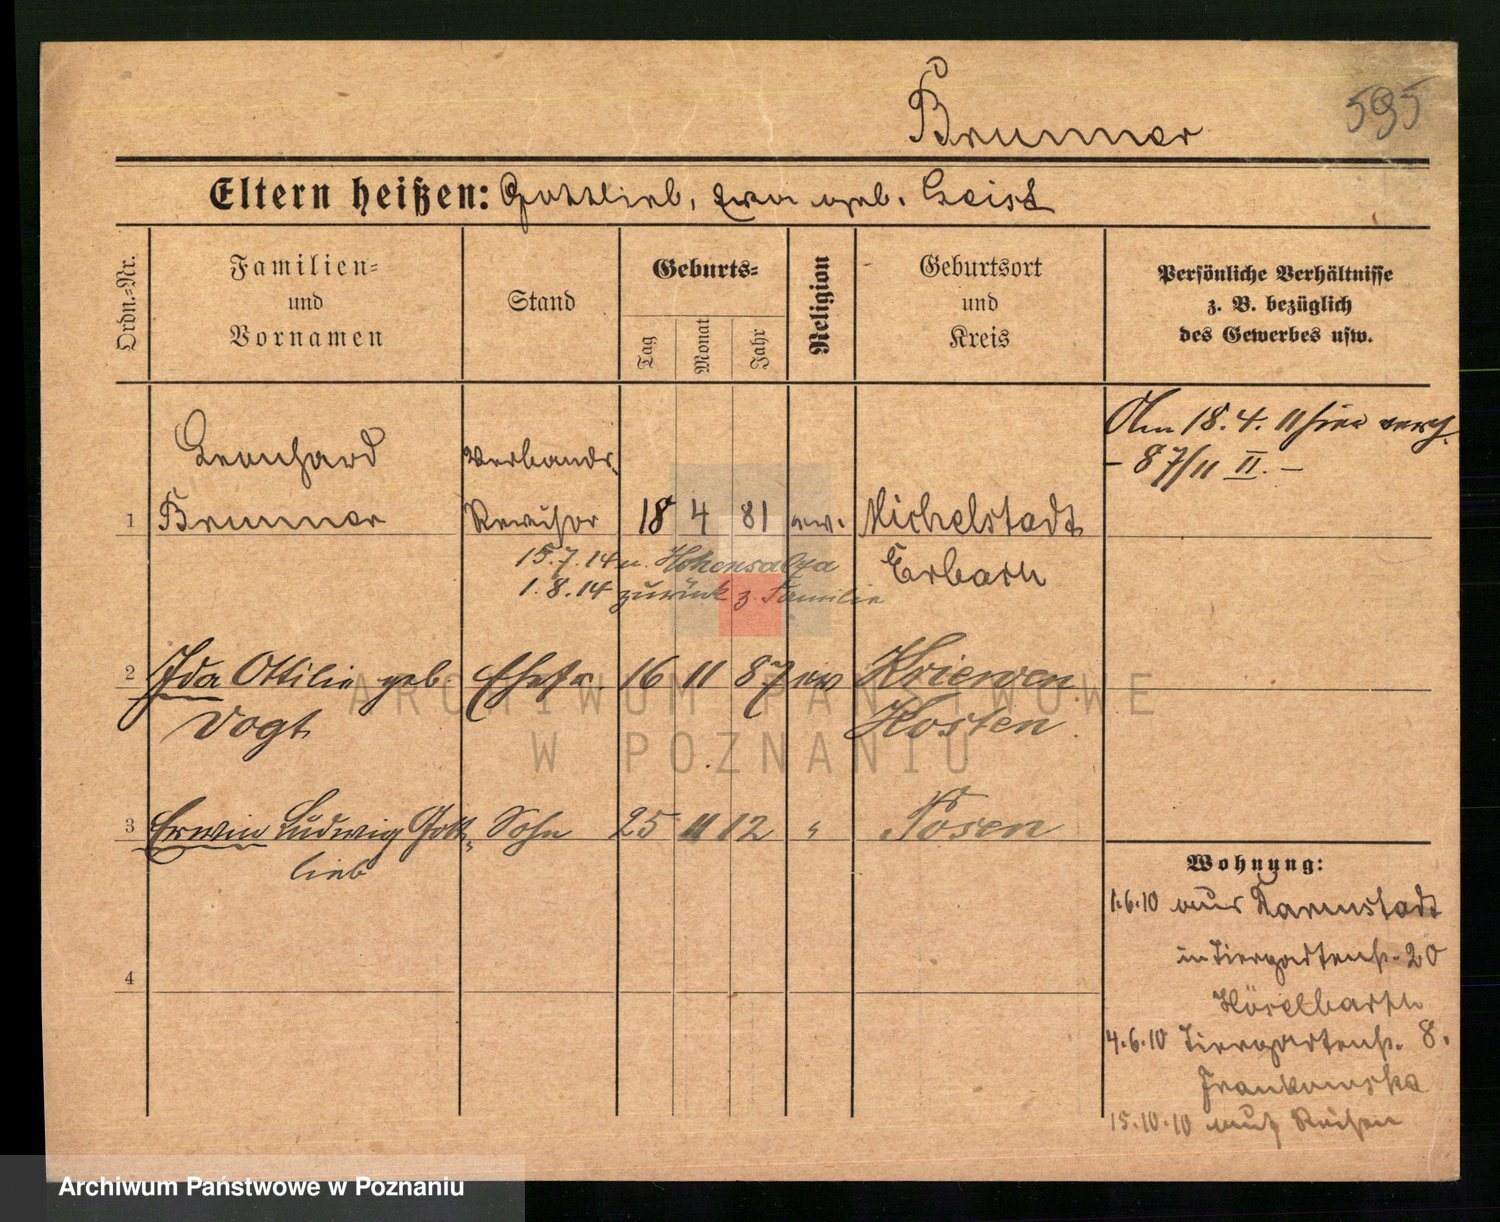 Brunner
595
Eltern heißen: Gottlieb, Eva geb. Geist
Ordn.-Nr.
Familien-
und
Vornamen
Stand
Geburts-
Tag
Monat
Jahr
Religion
Geburtsort
und
Kreis
Persönliche Verhältnisse
z. B. bezüglich
des Gewerbes usw.
Am 18.4.11 hier verh.
- 87/11 II. -
Leonhard Verbands-
1 Brunner Revisor 18 4 81 ev. Michelstadt
Erbach
15.7.14 n. Hohensalza
1.8.14 zurück z. Familie
2 Ida Ottilie geb Ehefr. 16 11 87 ev Kriewen
Vogt Kosten
3 Erwin Ludwig Gott- Sohn 25 11 12 " Posen
lieb
4
Wohnung:
1.6.10 aus Darmstadt
in Tiergartenstr. 20
4.6.10 Tiergartenstr. 8.
Frankowska
15.10.10 auf Reisen
ARCHIWUM PAŃSTWOWE
W POZNANIU
Archiwum Państwowe w Poznaniu